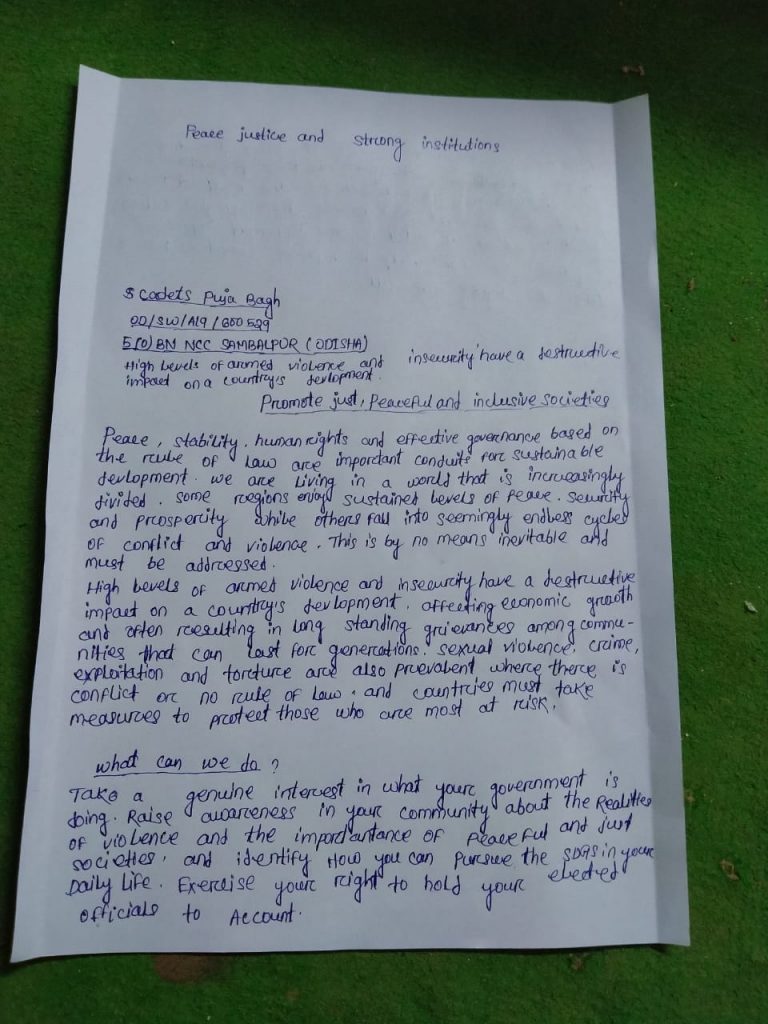 Peace justice and strong institutions
$ Cadets Puja Bagh
OD/SW/A19/600529
5(O) BN NCC SAMBALPUR (ODISHA)
High levels of armed violence and insecurity have a destructive
impact on a country's devlopment.
Promote just, Peaceful and inclusive societies
Peace, stability, human rights and effective governance based on
the rule of law are important conduits for sustainable
devlopment. we are living in a world that is increasingly
divided. some regions enjoy sustained levels of Peace. Security
and prosperity while others fall into seemingly endless cycles
of conflict and violence. This is by no means inevitable and
must be addressed.
High levels of armed violence and insecurity have a destructive
impact on a country's devlopment, affecting economic growth
and often resulting in long standing grievances among commu-
nities that can last for generations. sexual violence, crime,
exploitation and torture are also prevalent where there is
conflict or no rule of law. and countries must take
measures to protect those who are most at risk.
what can we do?
Take a genuine interest in what your government is
doing. Raise awareness in your community about the Realities
of violence and the importantance of Peaceful and just
societies, and identify How you can Pursue the SDGs in your
Daily Life. Exercise your right to hold your elected
officials to Account.